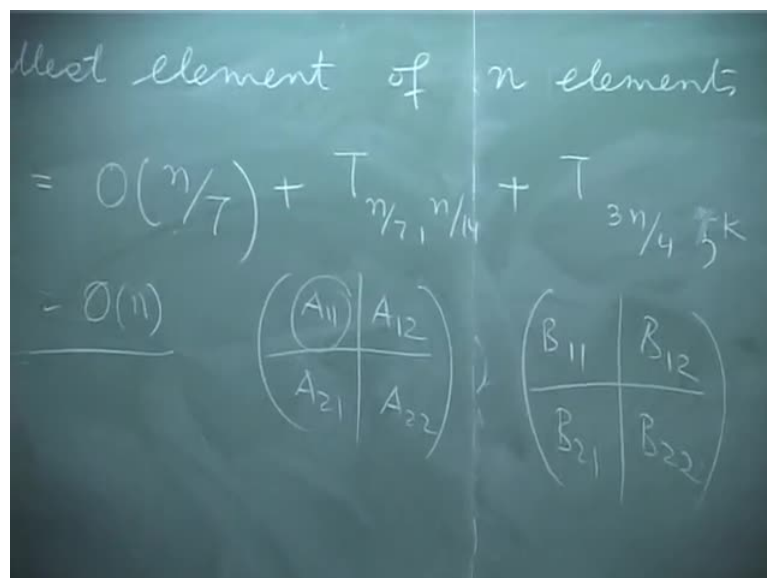 llest element of n elements
= O(n/7) + T n/7, n/14 + T 3n/4, k
= O(n)
A11 A12 B11 B12
A21 A22 B21 B22